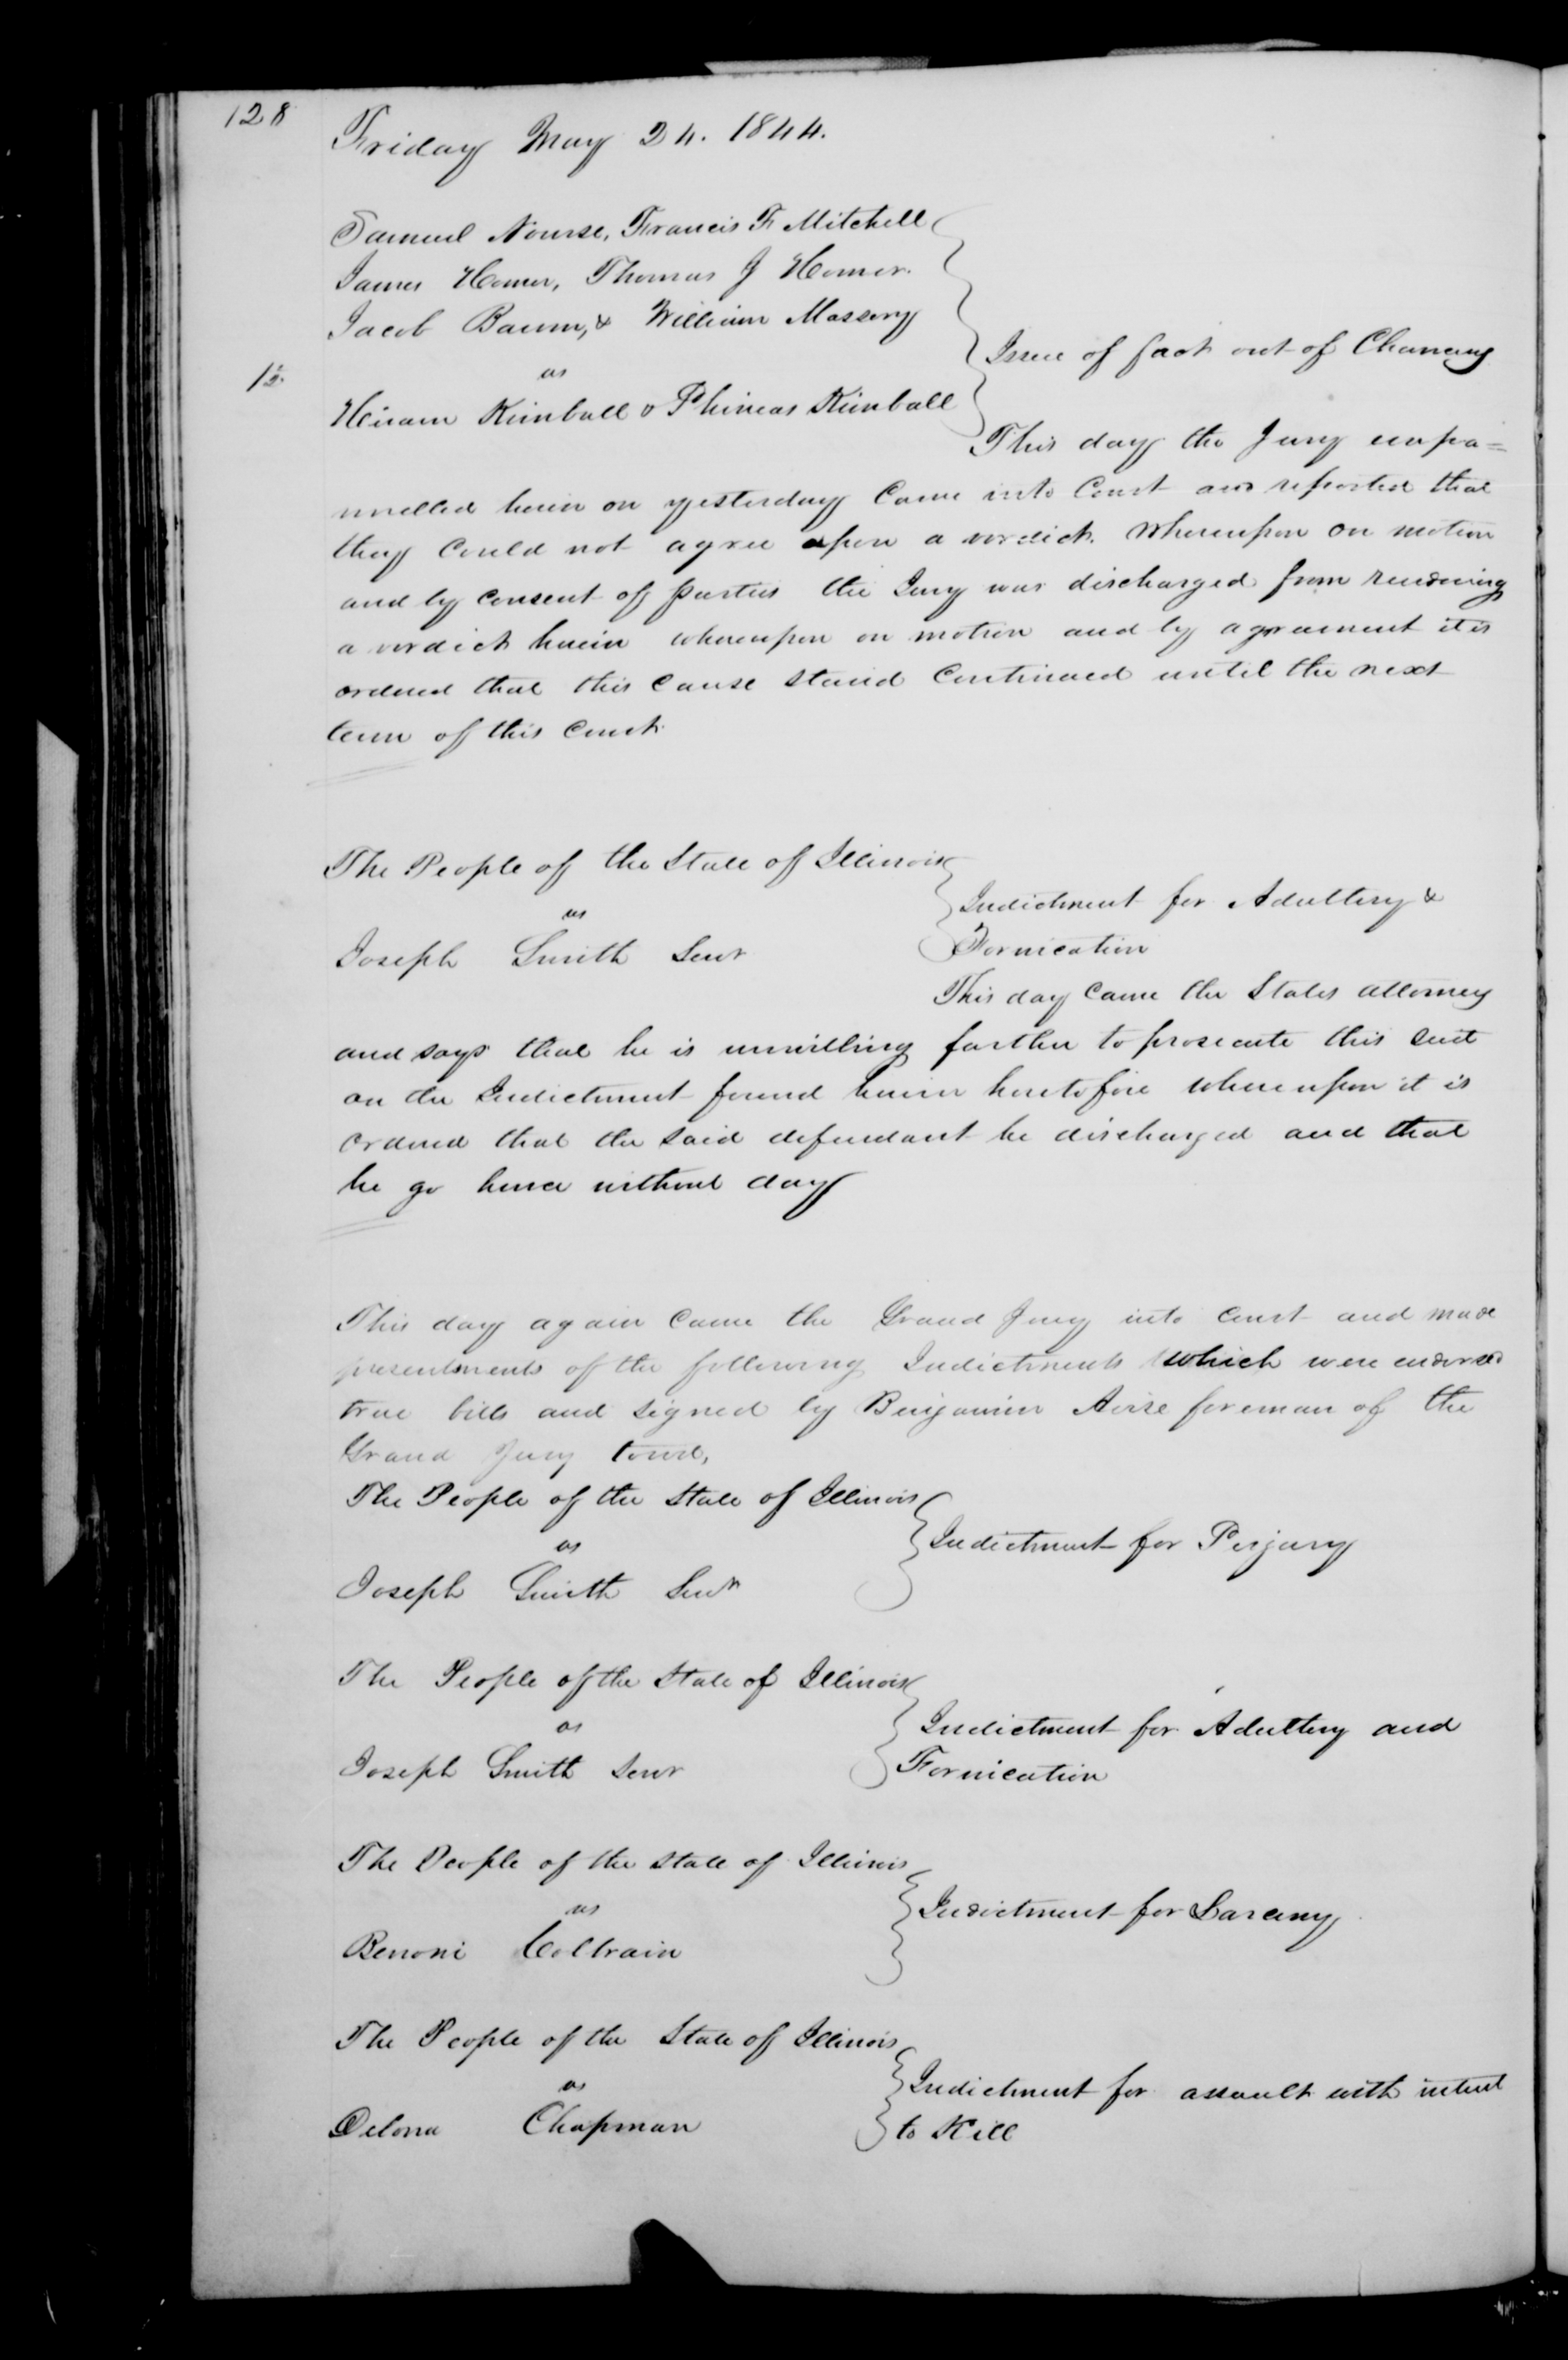 128
Friday May 24. 1844.
Samuel Nourse, Francis F. Mitchell
James Homer, Thomas J Homer.
Jacob Baum, & William Massery
vs
Hiram Kimball & Phineas Kimball
Issue of fact out of Chancery
This day the Jury empa=
nnelled herein on yesterday Came into Court and reported that
they Could not agree upon a verdict. Whereupon on motion
and by consent of parties the Jury was discharged from rendering
a verdict herein whereupon on motion and by agreement it is
ordered that this Cause stand Continued until the next
term of this Court
The People of the State of Illinois
vs
Joseph Smith Senr
Indictment for Adultery &
Fornication
This day Came the States attorney
and says that he is unwilling farther to prosecute this suit
on the Indictment found herein heretofore whereupon it is
ordered that the said defendant be discharged and that
he go hence without day
This day again Came the Grand Jury into Court and made
presentments of the following Indictments which were endorsed
true bills and signed by Benjamin Avise foreman of the
Grand Jury
The People of the State of Illinois
vs
Joseph Smith Senr
Indictment for Perjury
The People of the State of Illinois
vs
Joseph Smith Senr
Indictment for Adultery and
Fornication
The People of the State of Illinois
vs
Benoni Coltrain
Indictment for Larceny
The People of the State of Illinois
vs
Delona Chapman
Indictment for assault with intent
to Kill